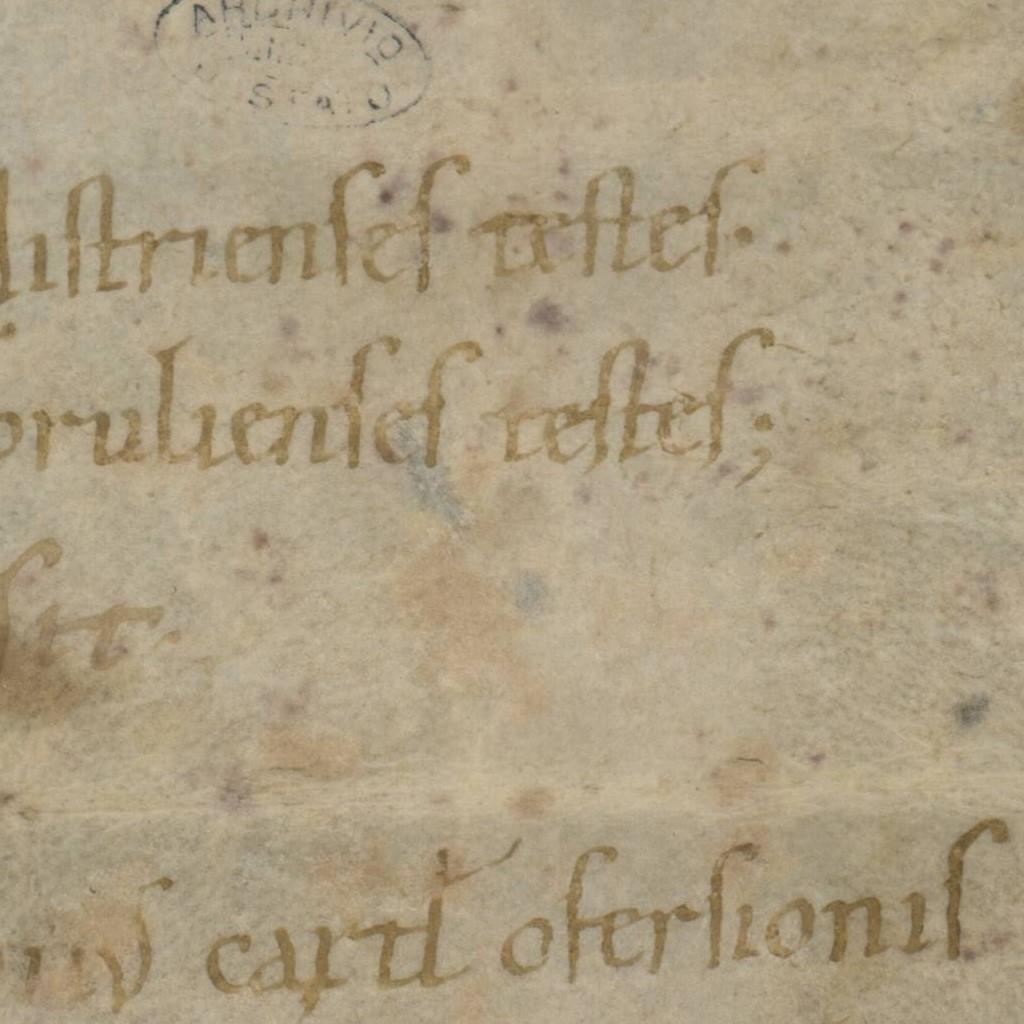 ARCHIVIO
STATO
listrienses testes.
orulienses testes;
stt.
cartl ofersionis